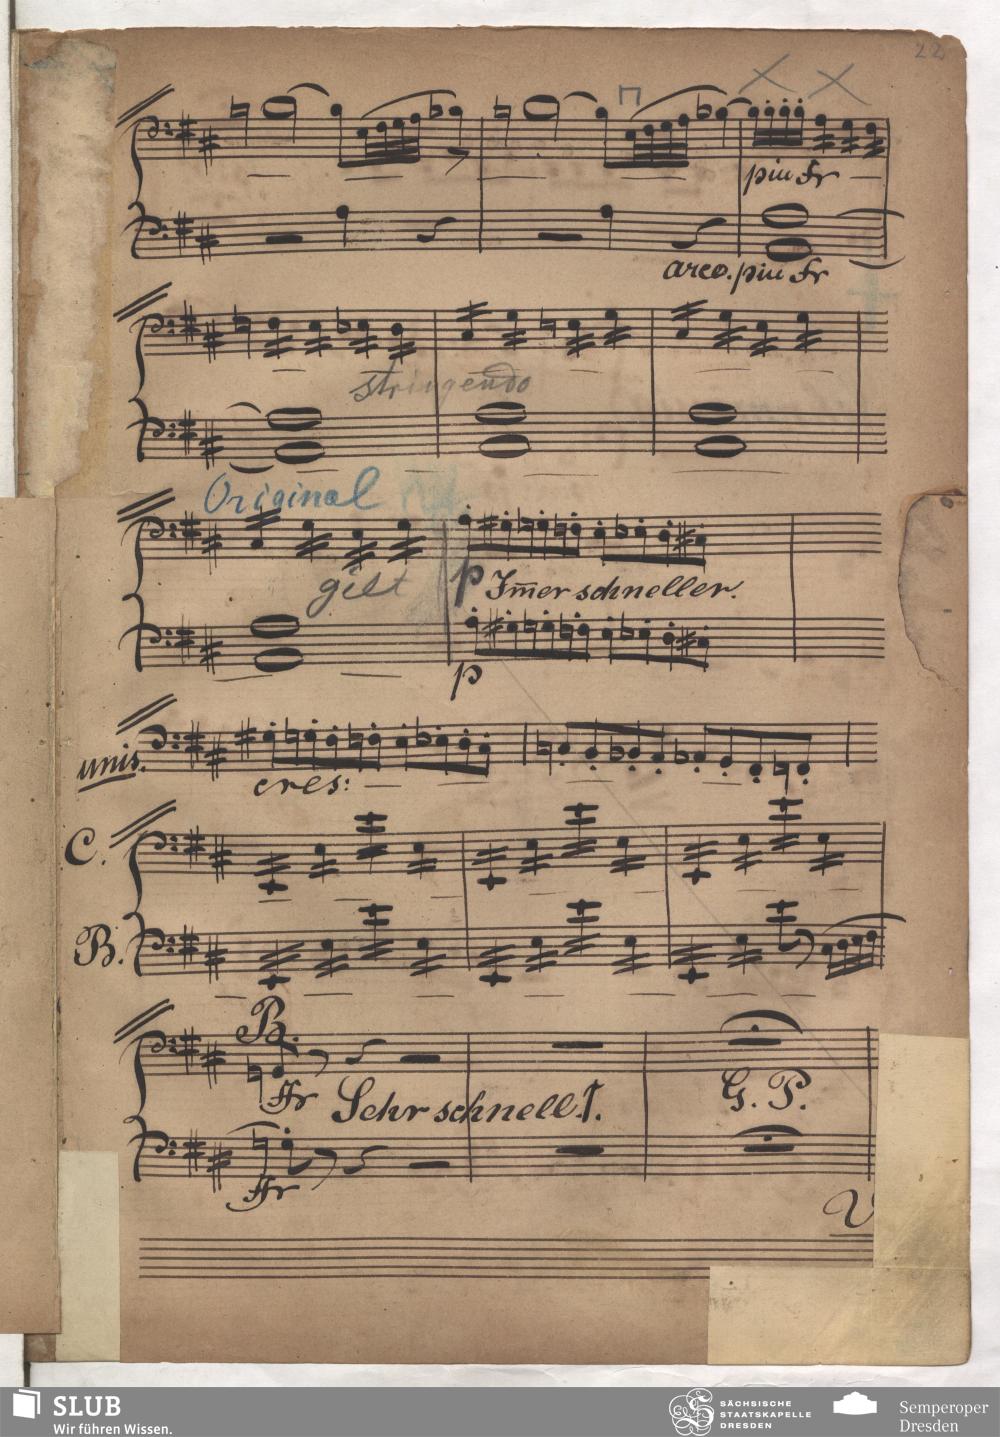 22
piu fr
arco. piu fr
stringendo
Original
gilt
p Im̅er schneller.
p
unis.
cres:
C.
B.
B.
ffr Sehr schnell!.
G. P.
ffr
V
SLUB
Wir führen Wissen.
SÄCHSISCHE
STAATSKAPELLE
DRESDEN
Semperoper
Dresden